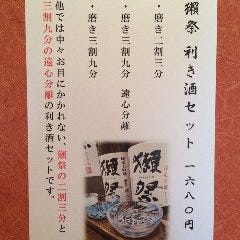 獺祭 利き酒セット 一六八〇円
・磨き二割三分
・磨き三割九分 遠心分離
・磨き三割九分
他では中々お目にかかれない、獺祭の二割三分と
三割九分の遠心分離の利き酒セットです。
獺祭
獺祭